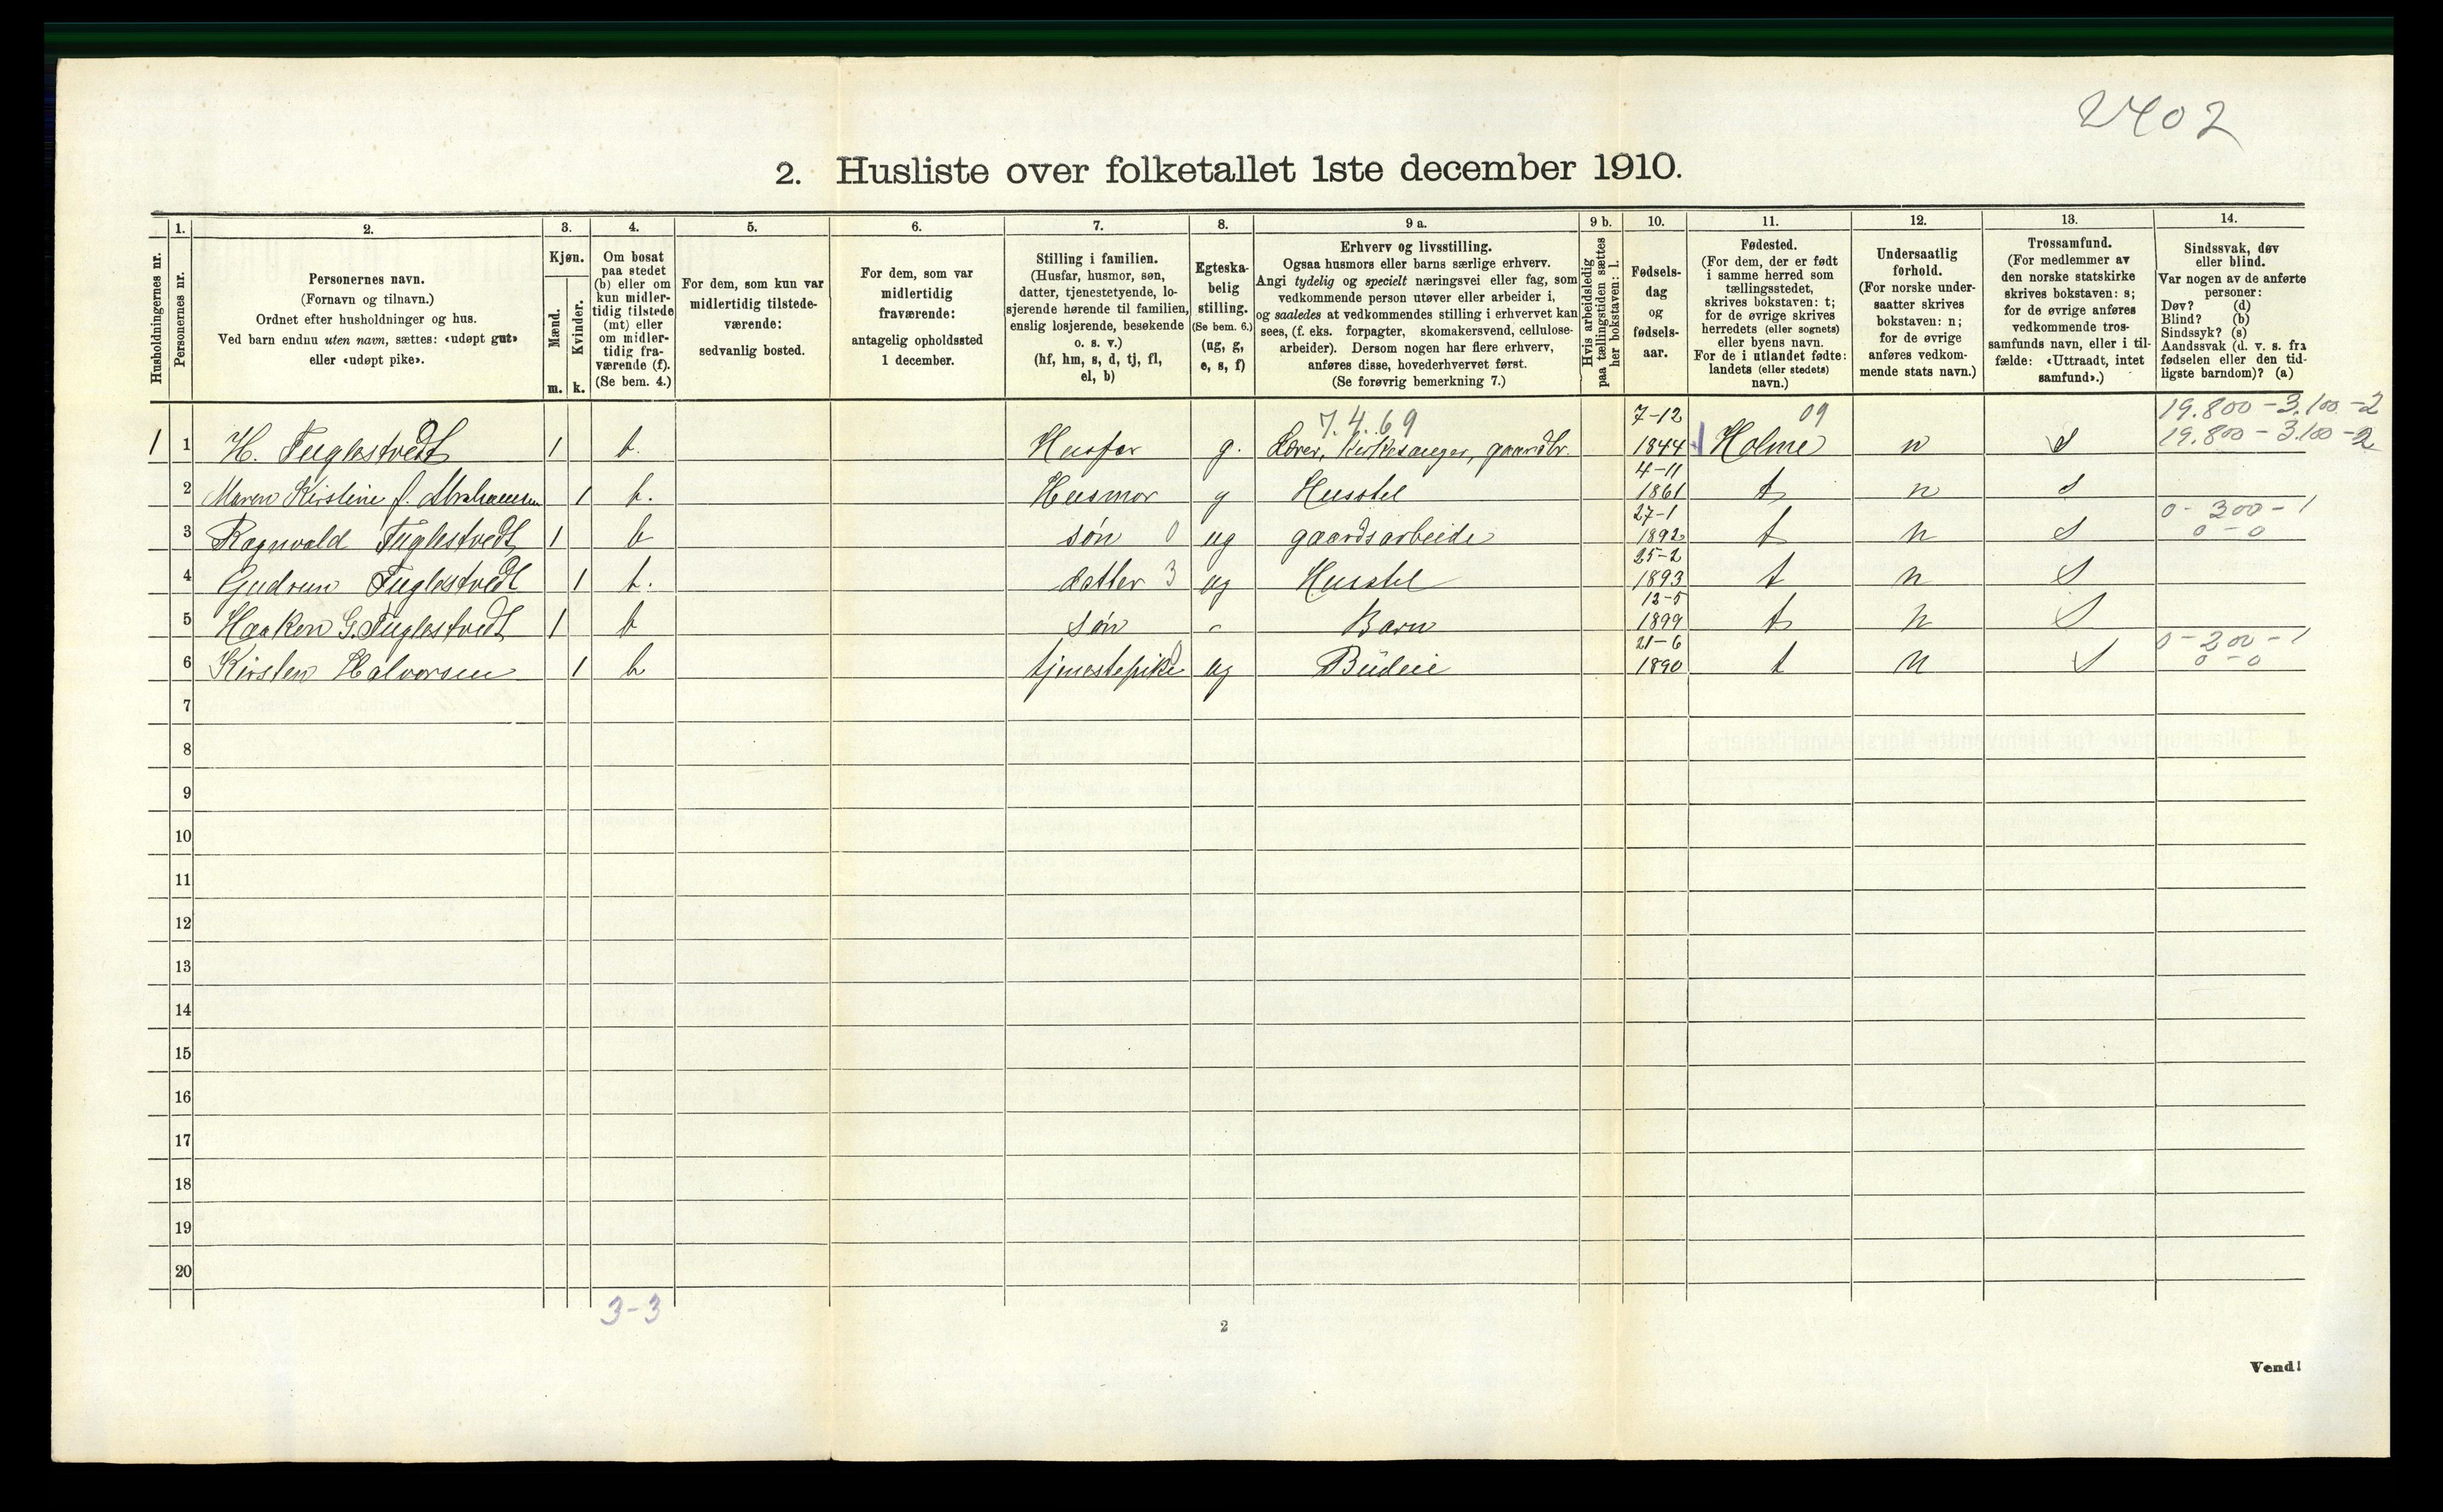 2402
2. Husliste over folketallet 1ste december 1910.
Husholdningernes nr.
1.
Personernes nr.
2.
Personernes navn.
(Fornavn og tilnavn.)
Ordnet efter husholdninger og hus.
Ved barn endnu uten navn, sættes: «udøpt gut»
eller «udøpt pike».
3.
Kjøn.
Mænd.
Kvinder.
m. k.
4.
Om bosat
paa stedet
(b) eller om
kun midler-
tidig tilstede
(mt) eller
om midler-
tidig fra-
værende (f).
(Se bem. 4.)
5.
For dem, som kun var
midlertidig tilstede-
værende:
sedvanlig bosted.
6.
For dem, som var
midlertidig
fraværende:
antagelig opholdssted
1 december.
7.
Stilling i familien.
(Husfar, husmor, søn,
datter, tjenestetyende, lo-
sjerende hørende til familien,
enslig losjerende, besøkende
o. s. v.)
(hf, hm, s, d, tj, fl,
el, b)
8.
Egteska-
belig
stilling.
(Se bem. 6.)
(ug, g,
e, s, f)
9 a.
Erhverv og livsstilling.
Ogsaa husmors eller barns særlige erhverv.
Angi tydelig og specielt næringsvei eller fag, som
vedkommende person utøver eller arbeider i,
og saaledes at vedkommendes stilling i erhvervet kan
sees, (f. eks. forpagter, skomakersvend, cellulose-
arbeider). Dersom nogen har flere erhverv,
anføres disse, hovederhvervet først.
(Se forøvrig bemerkning 7.)
9 b.
Hvis arbeidsledig
paa tællingstiden sættes
her bokstaven: l.
10.
Fødsels-
dag
og
fødsels-
aar.
11.
Fødested.
(For dem, der er født
i samme herred som
tællingsstedet,
skrives bokstaven: t;
for de øvrige skrives
herredets (eller sognets)
eller byens navn.
For de i utlandet fødte:
landets (eller stedets)
navn.)
12.
Undersaatlig
forhold.
(For norske under-
saatter skrives
bokstaven: n;
for de øvrige
anføres vedkom-
mende stats navn.)
13.
Trossamfund.
(For medlemmer av
den norske statskirke
skrives bokstaven: s;
for de øvrige anføres
vedkommende tros-
samfunds navn, eller i til-
fælde: «Uttraadt, intet
samfund».)
14.
Sindssvak, døv
eller blind.
Var nogen av de anførte
personer:
Døv? (d)
Blind? (b)
Sindssyk? (s)
Aandssvak (d. v. s. fra
fødselen eller den tid-
ligste barndom)? (a)
7.4.69 7-12 09 19.800 - 3.100 - 2
1 1 H. Fuglestvedt 1 b. Husfar g. Lærer, Kirkesanger, gaardbr. 1844 Holme n s 19.800 - 3.100 - 2
4-11
2 Maren Kirstine f. Abrahamsen 1 b. Husmor g Husstel 1861 t n s
27-1 0 - 300 - 1
3 Ragnvald Fuglestvedt 1 b søn 0 ug gaardsarbeide 1892 t n s 0 - 0
25-2
4 Gudrun Fuglestvedt 1 b. datter 3 ug Husstel 1893 t n s
12-5
5 Haakon G. Fuglestvedt 1 b søn - Barn 1899 t n s
21-6 0 - 200 - 1
6 Kirsten Halvorsen 1 b tjenestepike 0 ug Budeie 1890 t n s 0 - 0
7
8
9
10
11
12
13
14
15
16
17
18
19
20
3-3
2
Vend!